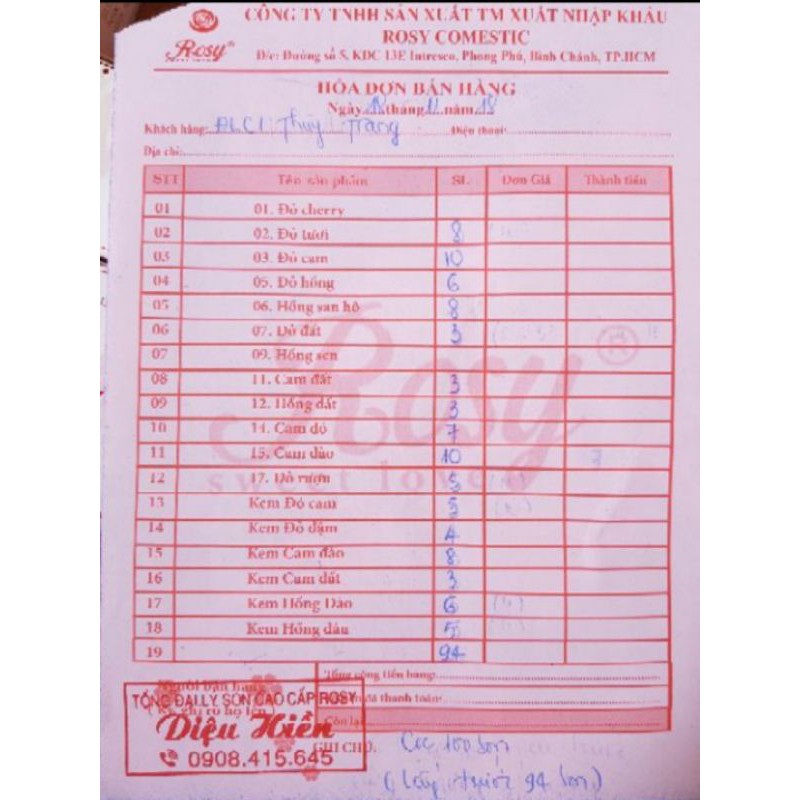 Rosy®
CÔNG TY TNHH SẢN XUẤT TM XUẤT NHẬP KHẨU
ROSY COMESTIC
Đ/c: Đường số 5, KDC 13E Intresco, Phong Phú, Bình Chánh, TP.HCM
HÓA ĐƠN BÁN HÀNG
Ngày 18 tháng 11 năm 18
Khách hàng: ĐLC1 Thùy Trang Điện thoại:
Địa chỉ:
STT Tên sản phẩm SL Đơn Giá Thành tiền
01 01. Đỏ cherry
02 02. Đỏ tươi 8
03 03. Đỏ cam 10
04 05. Đỏ hồng 6
05 06. Hồng san hô 8
06 07. Đỏ đất 3
07 09. Hồng sen
08 11. Cam đất 3
09 12. Hồng đất 3
10 14. Cam đỏ 7
11 15. Cam đào 10
12 17. Đỏ rượu 5
13 Kem Đỏ cam 5
14 Kem Đỏ đậm 4
15 Kem Cam đào 8
16 Kem Cam đất 3
17 Kem Hồng Đào 6
18 Kem Hồng dâu 5
19 94
Rosy®
sweet love
Tổng cộng tiền hàng:
đã thanh toán:
Còn lại
Người bán hàng
(Ký, ghi rõ họ tên)
TỔNG ĐẠI LÝ SON CAO CẤP ROSY
Diệu Hiền
0908.415.645
GHI CHÚ: Cọc 100 son
( lấy trước 94 son )